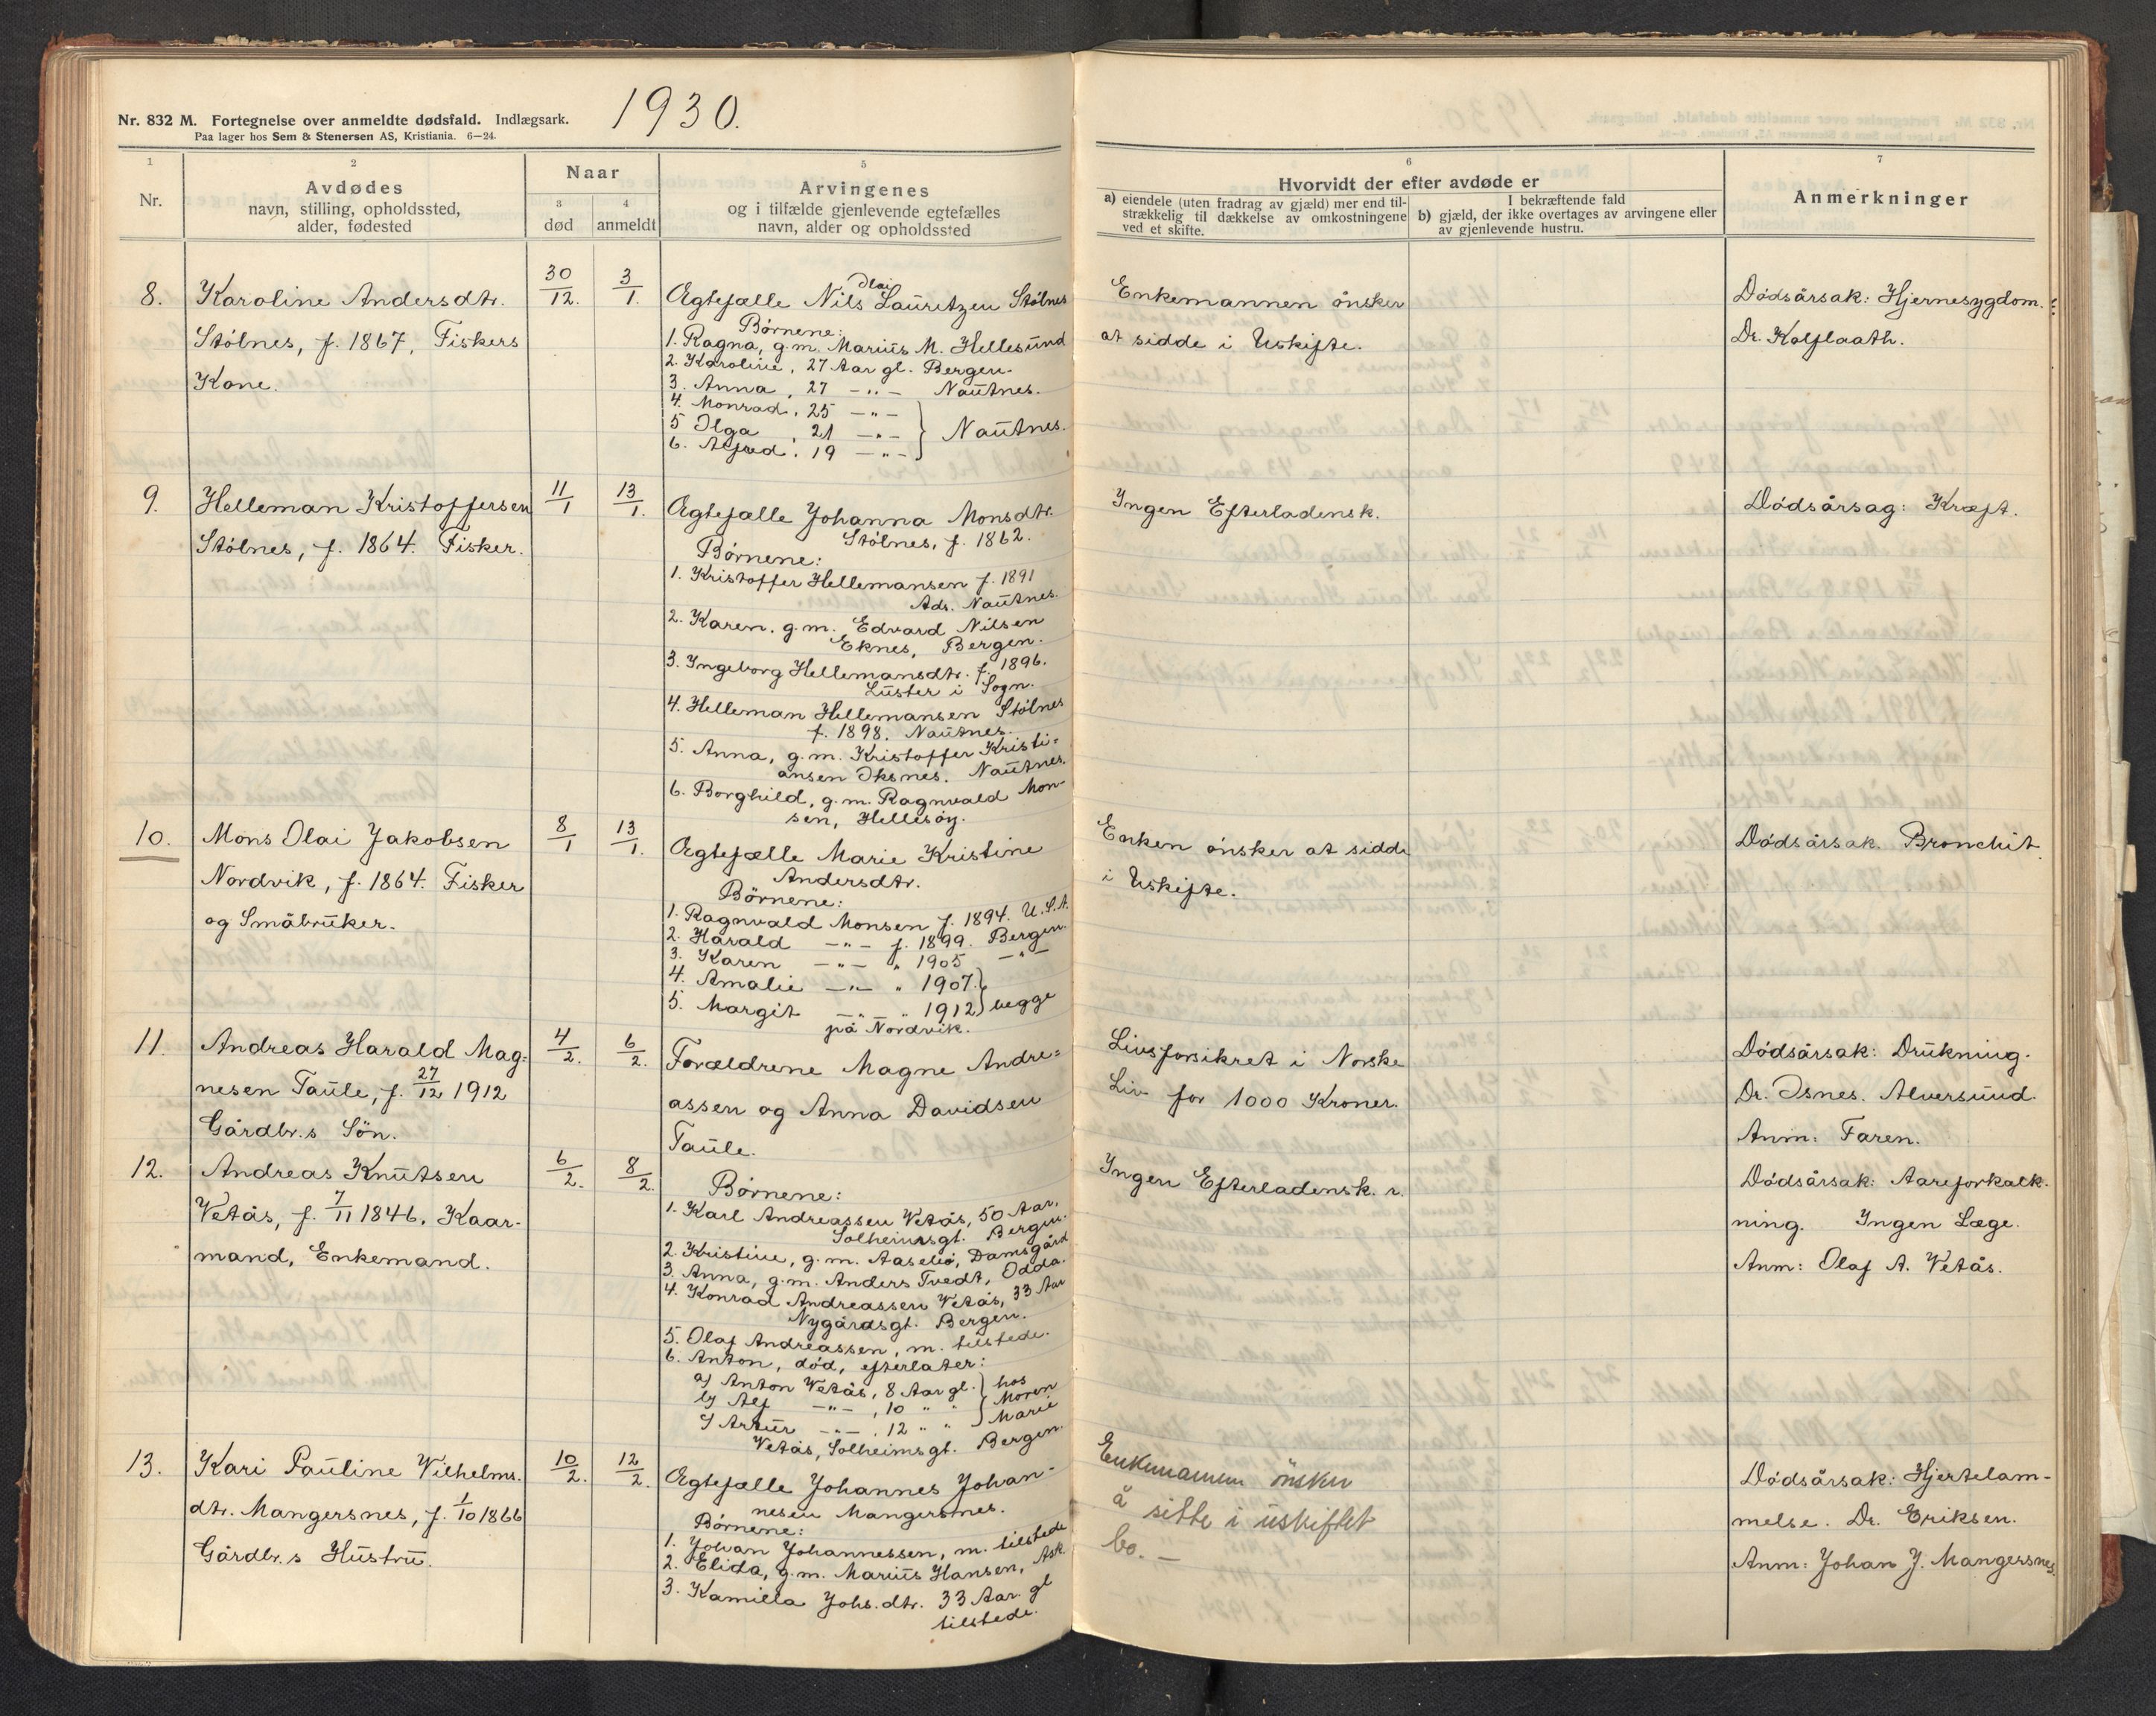 1930.
Nr. 832 M. Fortegnelse over anmeldte dødsfald. Indlægsark.
Paa lager hos Sem & Stenersen AS, Kristiania. 6—24.
1
Nr.
2
Avdødes
navn, stilling, opholdssted,
alder, fødested
Naar
3
død
4
anmeldt
5
Arvingenes
og i tilfælde gjenlevende egtefælles
navn, alder og opholdssted
6
Hvorvidt der efter avdøde er
a) eiendele (uten fradrag av gjæld) mer end til-
strækkelig til dækkelse av omkostningene
ved et skifte.
I bekræftende fald
b) gjæld, der ikke overtages av arvingene eller
av gjenlevende hustru.
7
Anmerkninger
8.
Karoline Andersdtr.
Stólnes, f. 1867, Fiskers
Kone.
30/12.
3/1.
Olai
Egtefælle Nils Lauritzen Stólnes
Børnene:
1. Ragna, g.m. Marius M. Hellesund
2. Karoline, 27 Aar gl. Bergen.
3. Anna, 27 —"— Nautnes.
4. Monrad, 25 —"—
5 Olga, 21 —"— } Nautnes.
6. Alfred, 19 —"—
Enkemannen ónsker
at sidde i Uskifte.
Dódsårsak: Hjernesygdom.
Dr. Kalflaath.
9.
Helleman Kristoffersen
Stólnes, f. 1864. Fisker.
11/1
13/1.
Egtefælle Johanna Monsdtr.
Stólnes, f. 1862.
Børnene:
1. Kristoffer Hellemansen f. 1891
Ads. Nautnes.
2. Karen, g.m. Edvard Nilsen
Eknes, Bergen.
3. Ingeborg Hellemansdtr. f. 1896.
Luster i Sogn.
4. Helleman Hellemansen Stólnes
f. 1898. Nautnes.
5. Anna, g.m. Kristoffer Kristi=
ansen Oksnes. Nautnes.
6. Borghild, g.m. Ragnvald Mon-
sen, Hellesøy.
Ingen Efterladensk.
Dódsårsag: Kræft.
10.
Mons Olai Jakobsen
Nordvik, f. 1864. Fisker
og Småbruker.
8/1
13/1.
Egtefælle Marie Kristine
Andersdtr.
Børnene:
1. Ragnvald Monsen f. 1894. U.S.A.
2. Harald —"— f. 1899. Bergen.
3. Karen —"— " 1905 —"—
4. Amalie —"— " 1907.}
5. Margit —"— " 1912} begge
på Nordvik.
Enken ónsker at sidde
i Uskifte.
Dódsårsak. Bronchit.
11.
Andreas Harald Mag=
nesen Taule, f. 27/12 1912
Gårdbr.s Sön.
4/2.
6/2.
Forældrene Magne Andre=
assen og Anna Davidsen
Taule.
Livsforsikret i Norske
Liv for 1000 Kroner.
Dódsårsak: Drukning.
Dr. Isnes. Alversund.
Anm: Faren.
12.
Andreas Knutsen
Vetås, f. 7/11 1846. Kaar-
mand, Enkemand.
6/2.
8/2.
Børnene:
1. Karl Andreassen Vetås, 50 Aar,
Solheimsgt. Bergen.
2. Kristine, g.m. Aasebø, Damsgård
3. Anna, g.m. Anders Tvedt, Odda.
4. Konrad Andreassen Vetås, 33 Aar
Nygårdsgt. Bergen.
5. Olaf Andreassen, m. tilstede.
6. Anton, död, efterlater:
a) Anton Vetås, 8 Aar gl. } hos
b) Alf —"—, 10 " " } Moren
c) Artur —"—, 12 " " } Marie
Vetås, Solheimsgt. Bergen.
Ingen Efterladensk. r.
Dódsårsak: Aareforkalk-
ning. Ingen Læge.
Anm: Olaf A. Vetås.
13.
Kari Pauline Vilhelms.
dtr. Mangersnes, f. 1/10 1866
Gårdbr.s Hustru.
10/2.
12/2.
Egtefælle Johannes Johan-
nesen Mangersnes.
Børnene:
1. Johan Johannessen, m. tilstede
2. Elida, g.m. Marius Hansen, Ask
3. Kamilla Johs.dtr. 33 Aar. gl
tilstede.
Enkemannen ónsker
å sitte i uskiftet
bo. —
Dódsårsak: Hjertelam-
melse. Dr. Eriksen.
Anm: Johan J. Mangersnes.